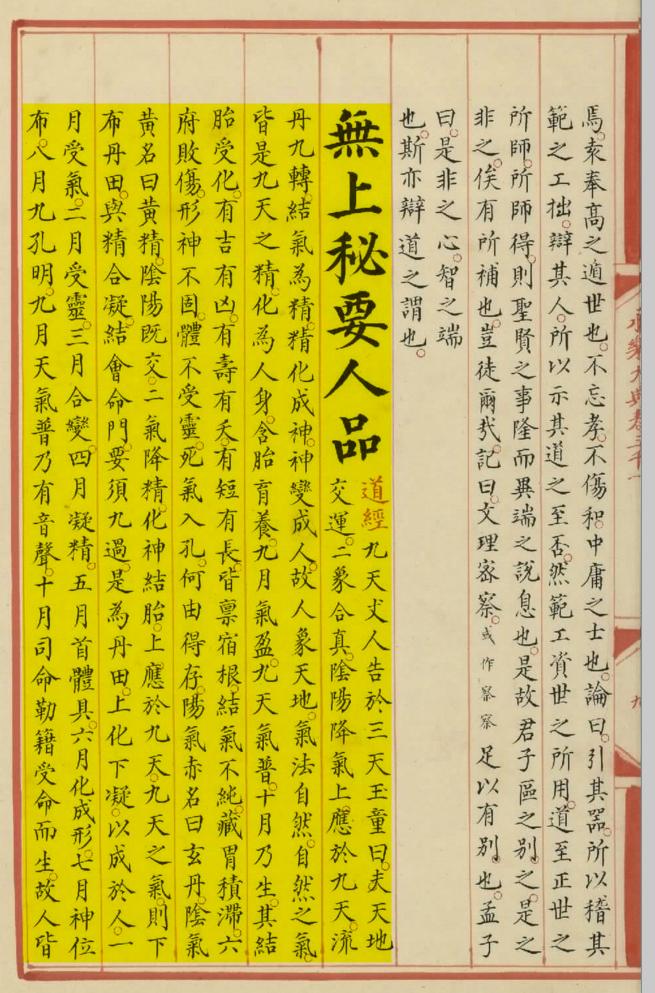 焉袁奉高之遁世也不忘孝不傷和中庸之士也論曰引其器所以稽其
範之工拙辯其人所以示其道之至否然範工資世之所用道至正世之
所師所師得則聖賢之事隆而異端之說息也是故君子區之别之是之
非之俟有所補也豈徒爾㦲記曰文理宻察或作察察足以有别也孟子
曰是非之心智之端
也斯亦辯道之謂也
無上秘要人品
道經九天丈人告於三天玉童曰夫天地
交運二象合真陰陽降氣上應於九天流
丹九轉結氣為精精化成神神變成人故人象天地氣法自然自然之氣
皆是九天之精化為人身含胎育養九月氣盈九天氣普十月乃生其結
胎受化有吉有凶有壽有夭有短有長皆禀宿根結氣不純藏胃積滯六
府敗傷形神不固體不受靈死氣入孔何由得存陽氣赤名曰玄丹陰氣
黃名曰黃精陰陽既交二氣降精化神結胎上應於九天九天之氣則下
布丹田與精合凝結會命門要須九過是為丹田上化下凝以成於人一
月受氣二月受靈三月合變四月凝精五月首體具六月化成形七月神位
布八月九孔明九月天氣普乃有音聲十月司命勒籍受命而生故人皆